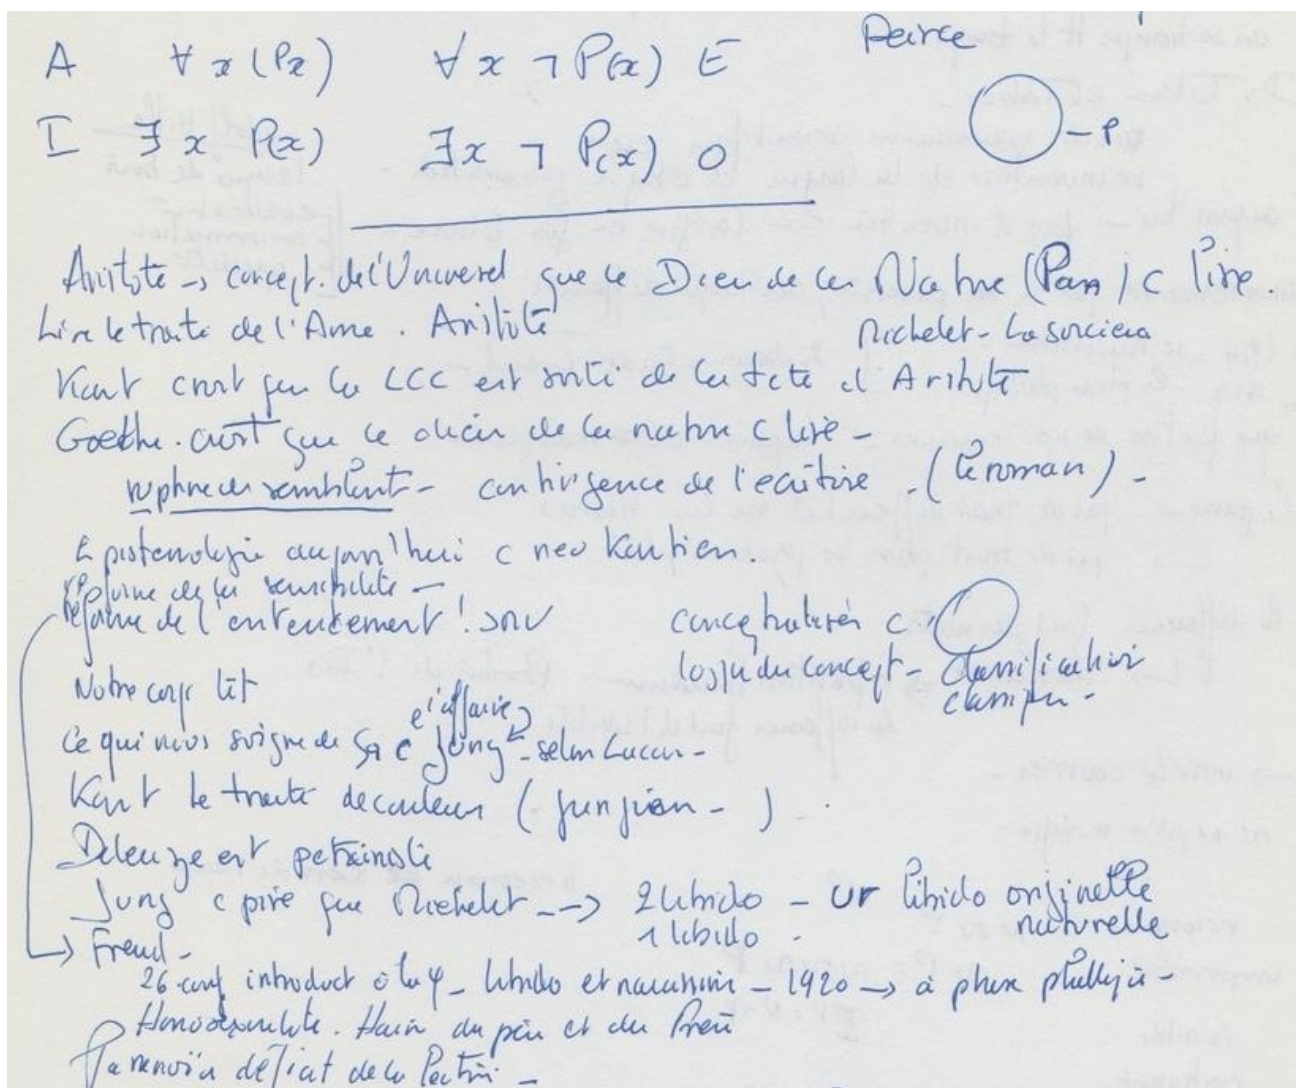 A ∀x (Px) ∀x ¬P(x) E
Peirce
I ∃x P(x) ∃x ¬P(x) O
- P
Aristote → concept. de l'Universel que le Dieu de la Nature (Pan) c lire
Lire le traité de l'Ame. Aristote
Michelet - La sorcière
Kant croit que la LCC est sorti de la tete d'Aristote
Goethe. croit que le dieu de la nature c lire -
rupture du semblant - contingence de l'ecriture - (le roman) -
Epistemologie aujourd'hui c neo Kantien.
réforme de la sensibilité -
réforme de l'entendement!
conceptualiser c
logiq du concept - classification
classifier -
Notre corps
Ce qui nous soigne de ça c Jung - selon Lacan -
Kant le traité de couleurs (jungien - )
Deleuze est
Jung c pire que Michelet --> 2 libido - Ur libido originelle
naturelle
1 libido -
→ Freud -
26 conf introduct à la φ - libido et narcissisme - 1920 → a phase phallique
Homosexualité. Haine du père et du Frère
Paranoïa